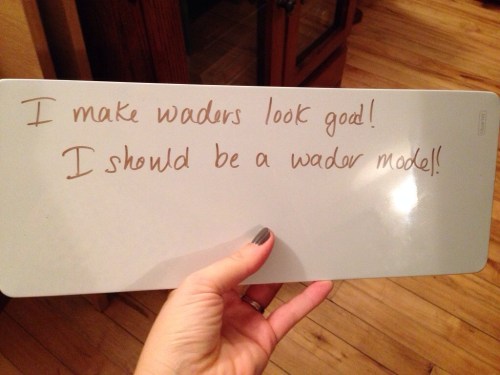 I make waders look good!
I should be a wader model!